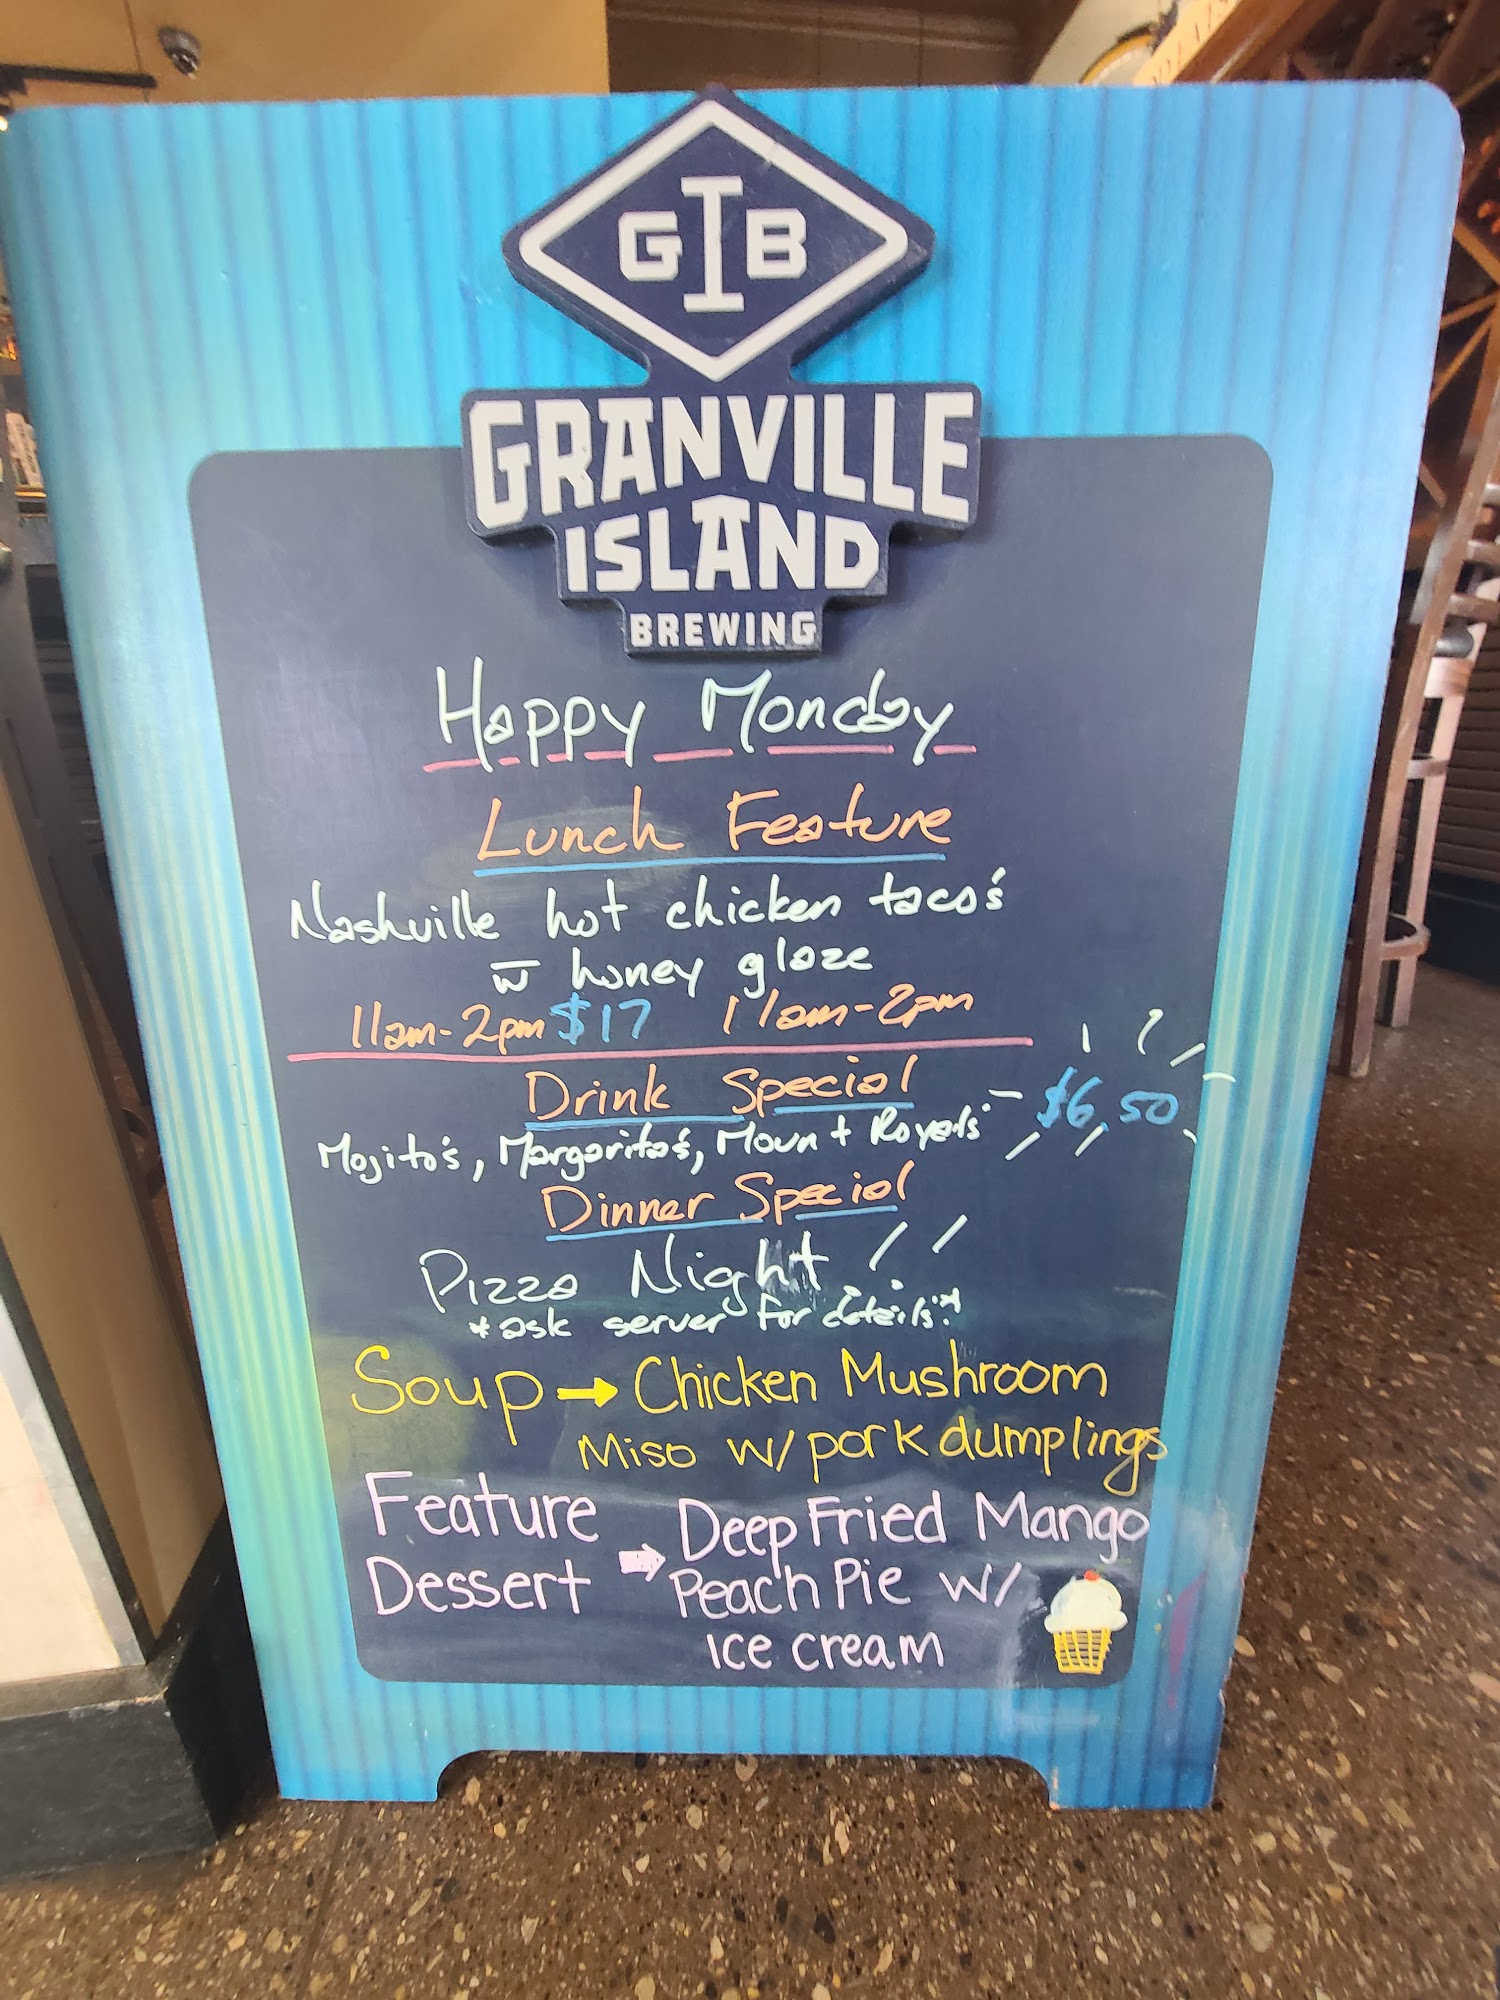 GIB
GRANVILLE
ISLAND
BREWING
Happy Monday
Lunch Feature
Nashville hot chicken taco's
w̅ honey glaze
11am-2pm $17 11am-2pm
Drink Special
Mojito's, Margarita's, Mount Royals $6.50
Dinner Special
Pizza Night!!
*ask server for details!*
Soup → Chicken Mushroom
Miso w/ pork dumplings
Feature Dessert → Deep Fried Mango
Peach Pie w/
ice cream